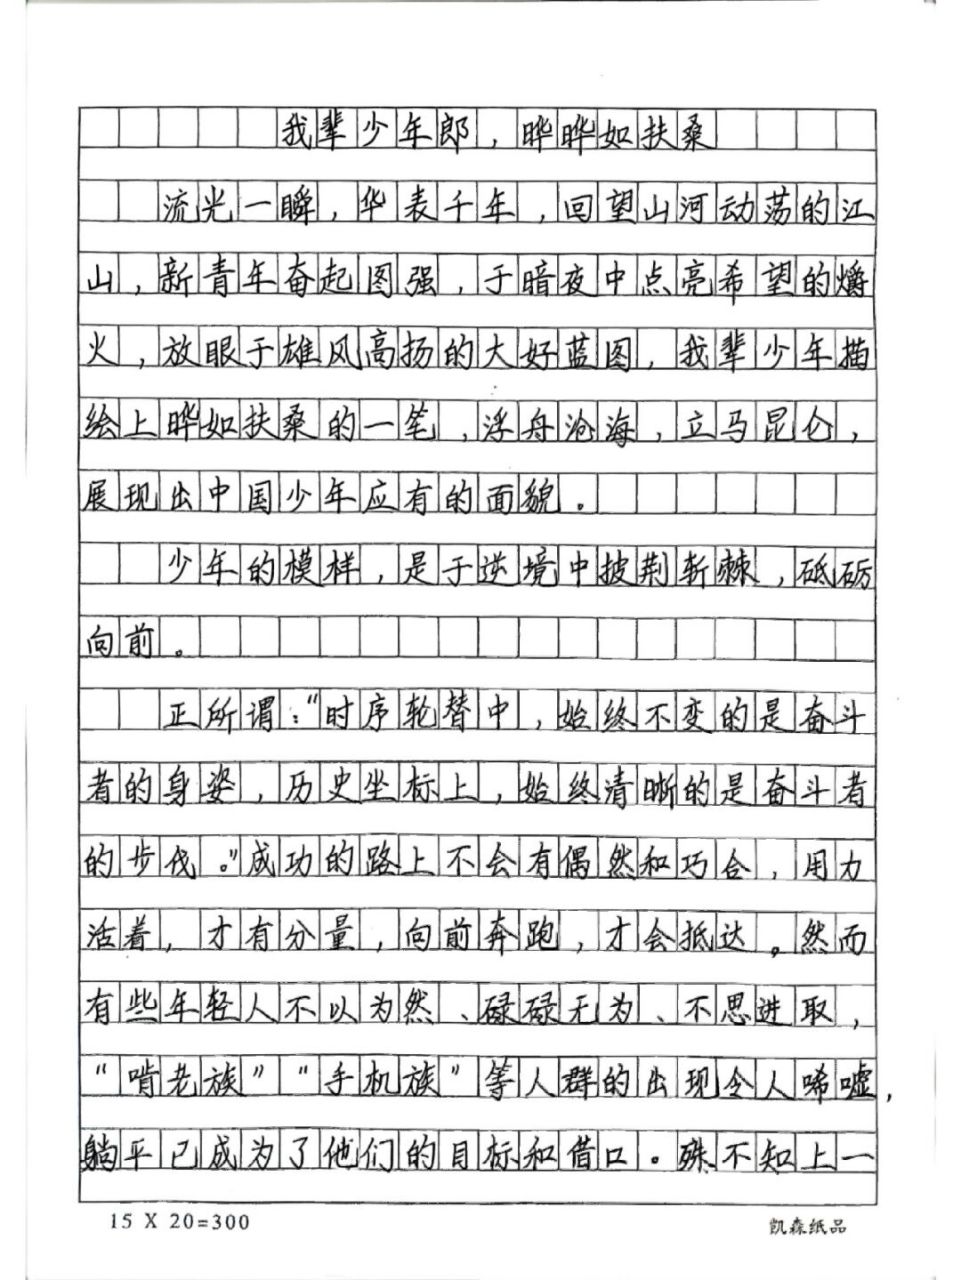 我辈少年郎，晔晔如扶桑
流光一瞬，华表千年，回望山河动荡的江
山，新青年奋起图强，于暗夜中点亮希望的爝
火，放眼于雄风高扬的大好蓝图，我辈少年描
绘上晔如扶桑的一笔，浮舟沧海，立马昆仑，
展现出中国少年应有的面貌。
少年的模样，是于逆境中披荆斩棘，砥砺
向前。
正所谓：“时序轮替中，始终不变的是奋斗
者的身姿，历史坐标上，始终清晰的是奋斗者
的步伐。”成功的路上不会有偶然和巧合，用力
活着，才有分量，向前奔跑，才会抵达。然而
有些年轻人不以为然、碌碌无为、不思进取，
“啃老族”“手机族”等人群的出现令人唏嘘，
躺平已成为了他们的目标和借口。殊不知上一
15 X 20=300
凯森纸品